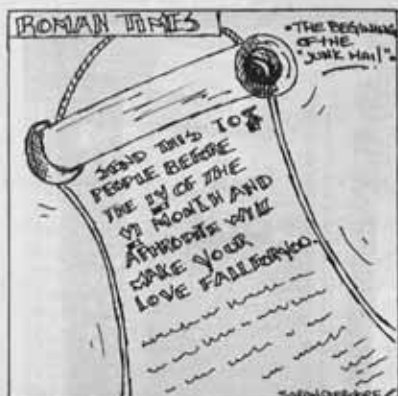 ROMAN TIMES
"THE BEGINNING
OF THE
"JUNK MAIL".
SEND THIS TO X
PEOPLE BEFORE
THE IV OF THE
VI MONTH AND
APHRODITE WILL
MAKE YOUR
LOVE FALL FOR YOU.